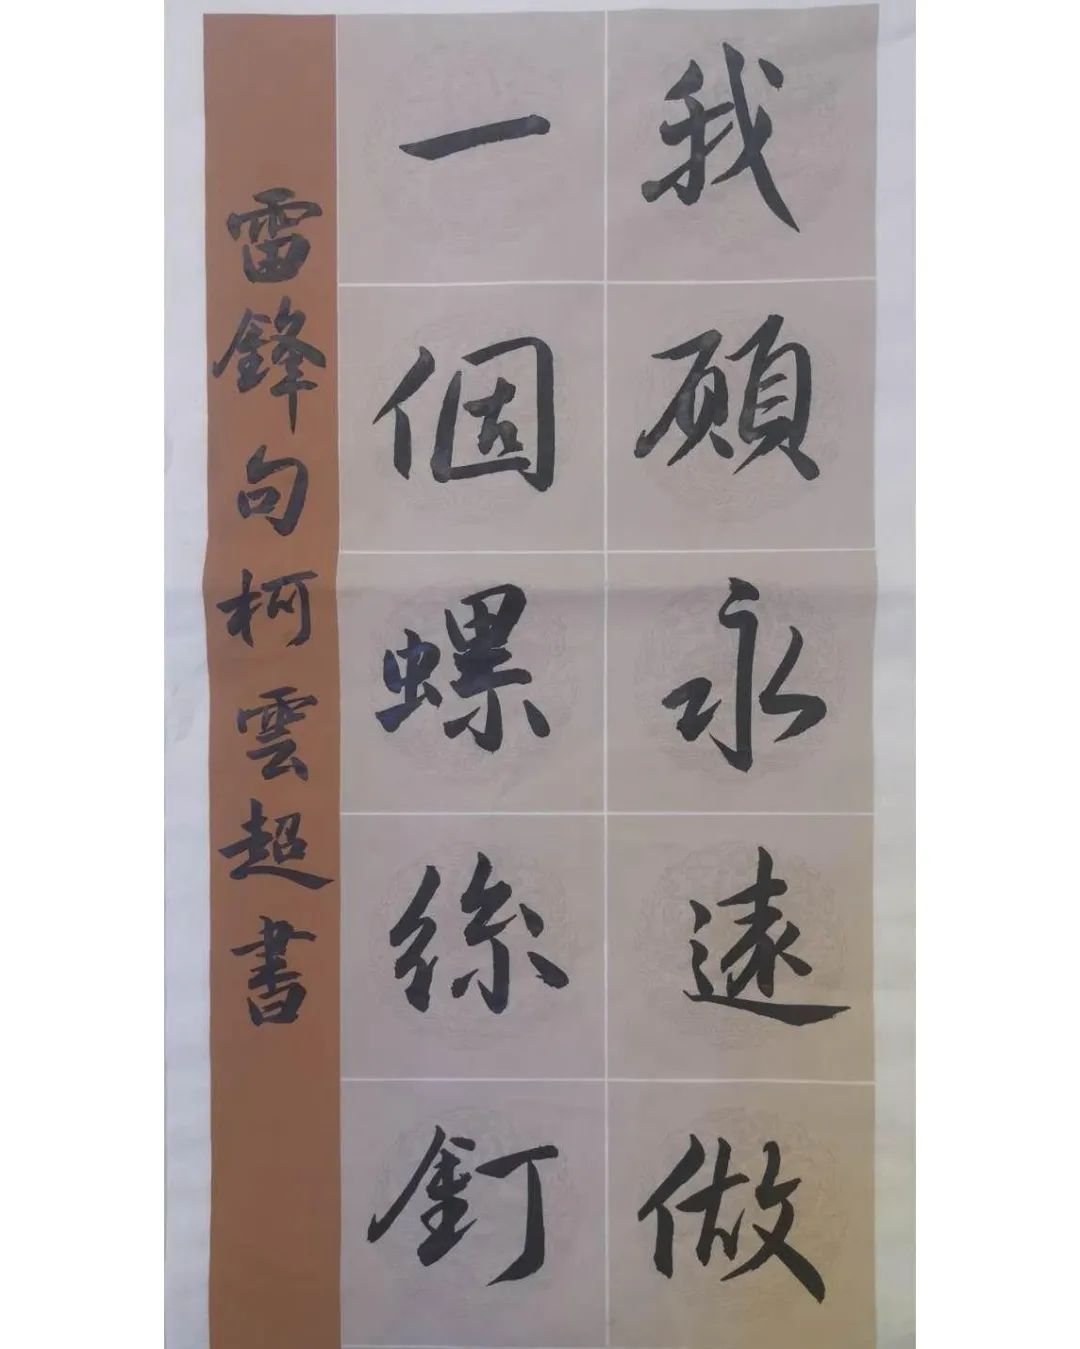 我願永遠做
一個螺絲釘
雷鋒句柯雲超書